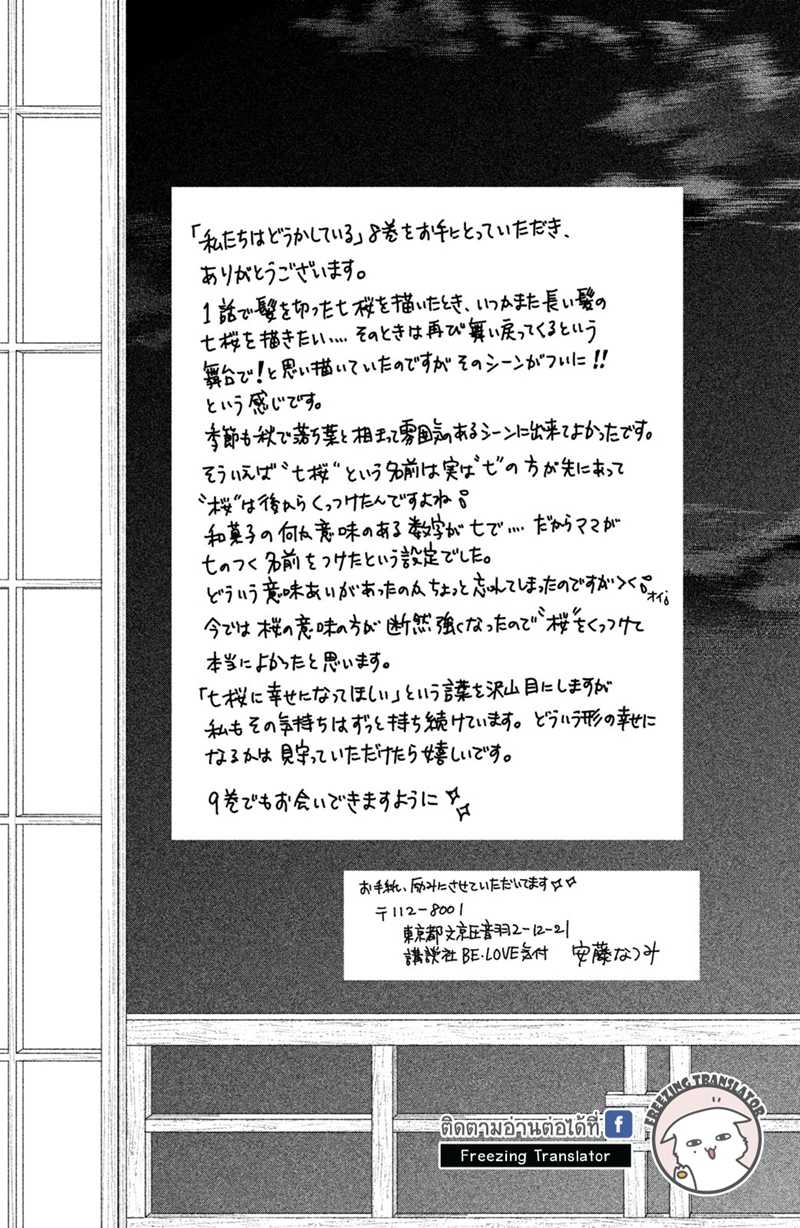 「私たちはどうかしている」8巻をお手にとっていただき、
ありがとうございます。
1話で髪を切った七桜を描いたとき、いつかまた長い髪の
七桜を描きたい‥‥そのときは再び舞い戻ってくるという
舞台で!と思い描いていたのですがそのシーンがついに!!
という感じです。
季節も秋で落ち葉と相まって雰囲気のあるシーンに出来てよかったです。
そういえば"七桜"という名前は実は"七"の方が先にあって
"桜"は後からくっつけたんですよね
和菓子の何か意味のある数字が七で‥‥だからママが
七のつく名前をつけたという設定でした。
どういう意味あいがあったのか、ちょっと忘れてしまったのですが><
オイ
今では桜の意味の方が断然強くなったので"桜"をくっつけて
本当によかったと思います。
「七桜に幸せになってほしい」という言葉を沢山目にしますが
私もその気持ちはずっと持ち続けています。どういう形の幸せに
なるかは見守っていただけたら嬉しいです。
9巻でもお会いできますように
お手紙、励みにさせていただいてます
〒112-8001
東京都文京区音羽2-12-21
講談社 BE・LOVE気付 安藤なつみ
ติดตามอ่านต่อได้ที่ f
Freezing Translator
FREEZING TRANSLATOR